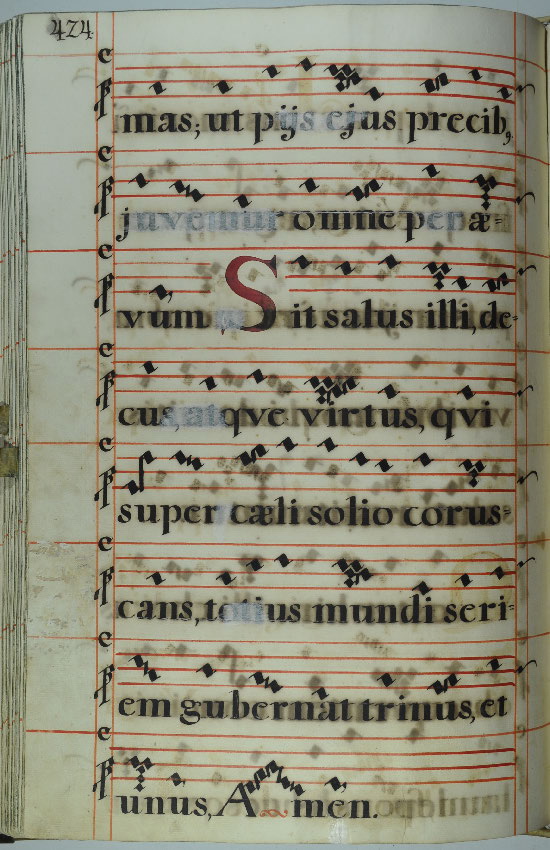 424
mas; ut pijs ejus precib9
juvemur omne per æ=
vum Sit salus illi, de=
cus, atqve virtus, qvi
super cæli solio corus=
cans, totius mundi seri=
em gubernat trinus, et
unus, Amen.